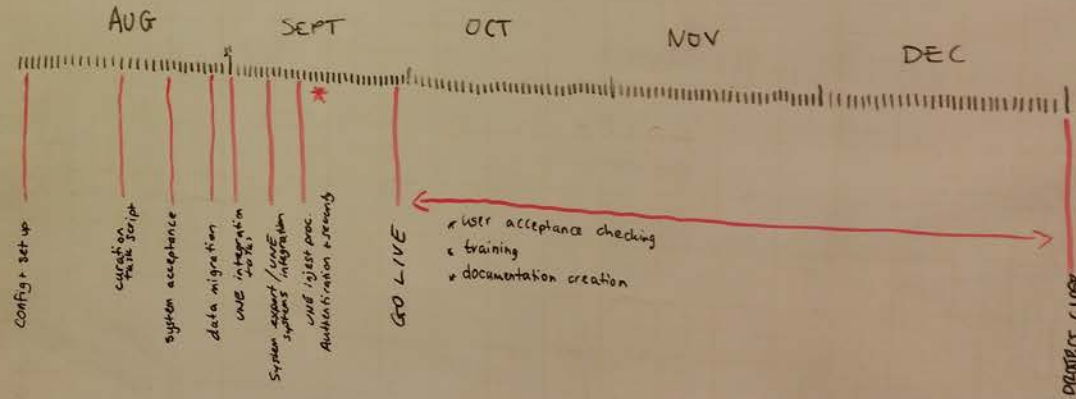 AUG
SEPT
OCT
NOV
DEC
Config + set up
curation
task script
System acceptance
data migration
UNE integration
System export / UNE
systems integration
UNE injest proc.
Authentication + security
GO LIVE
* user acceptance checking
* training
* documentation creation
PROJECT CLOSE